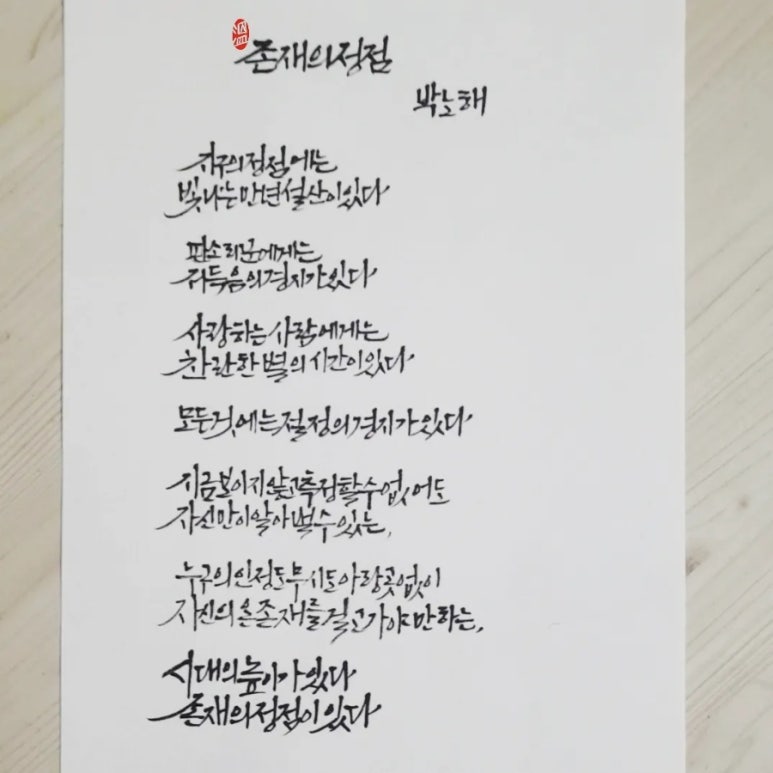 존재의 정점
박노해
지구의 정점에는
빛나는 만년설산이 있다
판소리꾼에게는
득음의 경지가 있다
사랑하는 사람에게는
찬란한 별의 시간이 있다
모든 것에는 절정의 경지가 있다
지금 보이지 않고 측정할 수 없어도
자신만이 알아 볼 수 있는,
누구의 인정도 무시도 아랑곳없이
자신의 온 존재를 걸고 가야만 하는,
시대의 높이가 있다
존재의 정점이 있다